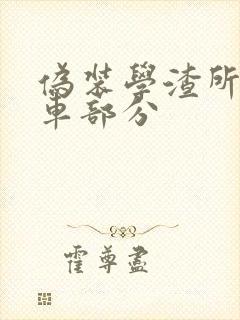 偽裝學渣所
車部分
霍尊盡